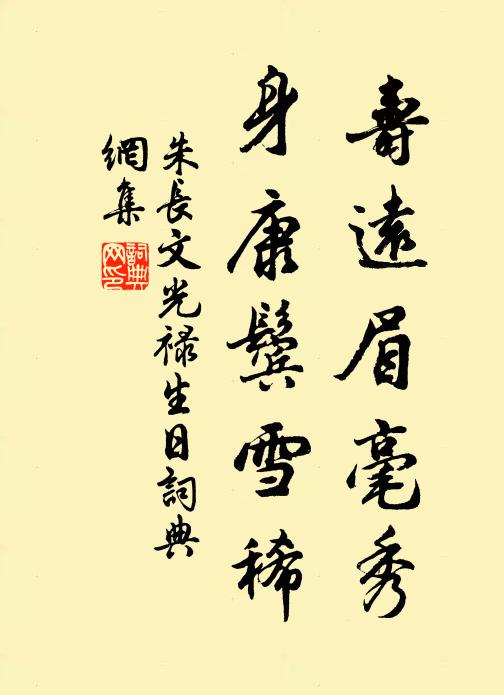 壽遠眉毫秀
身康鬢雪稀
朱長文光祿生日詞典
網集
詞典网印